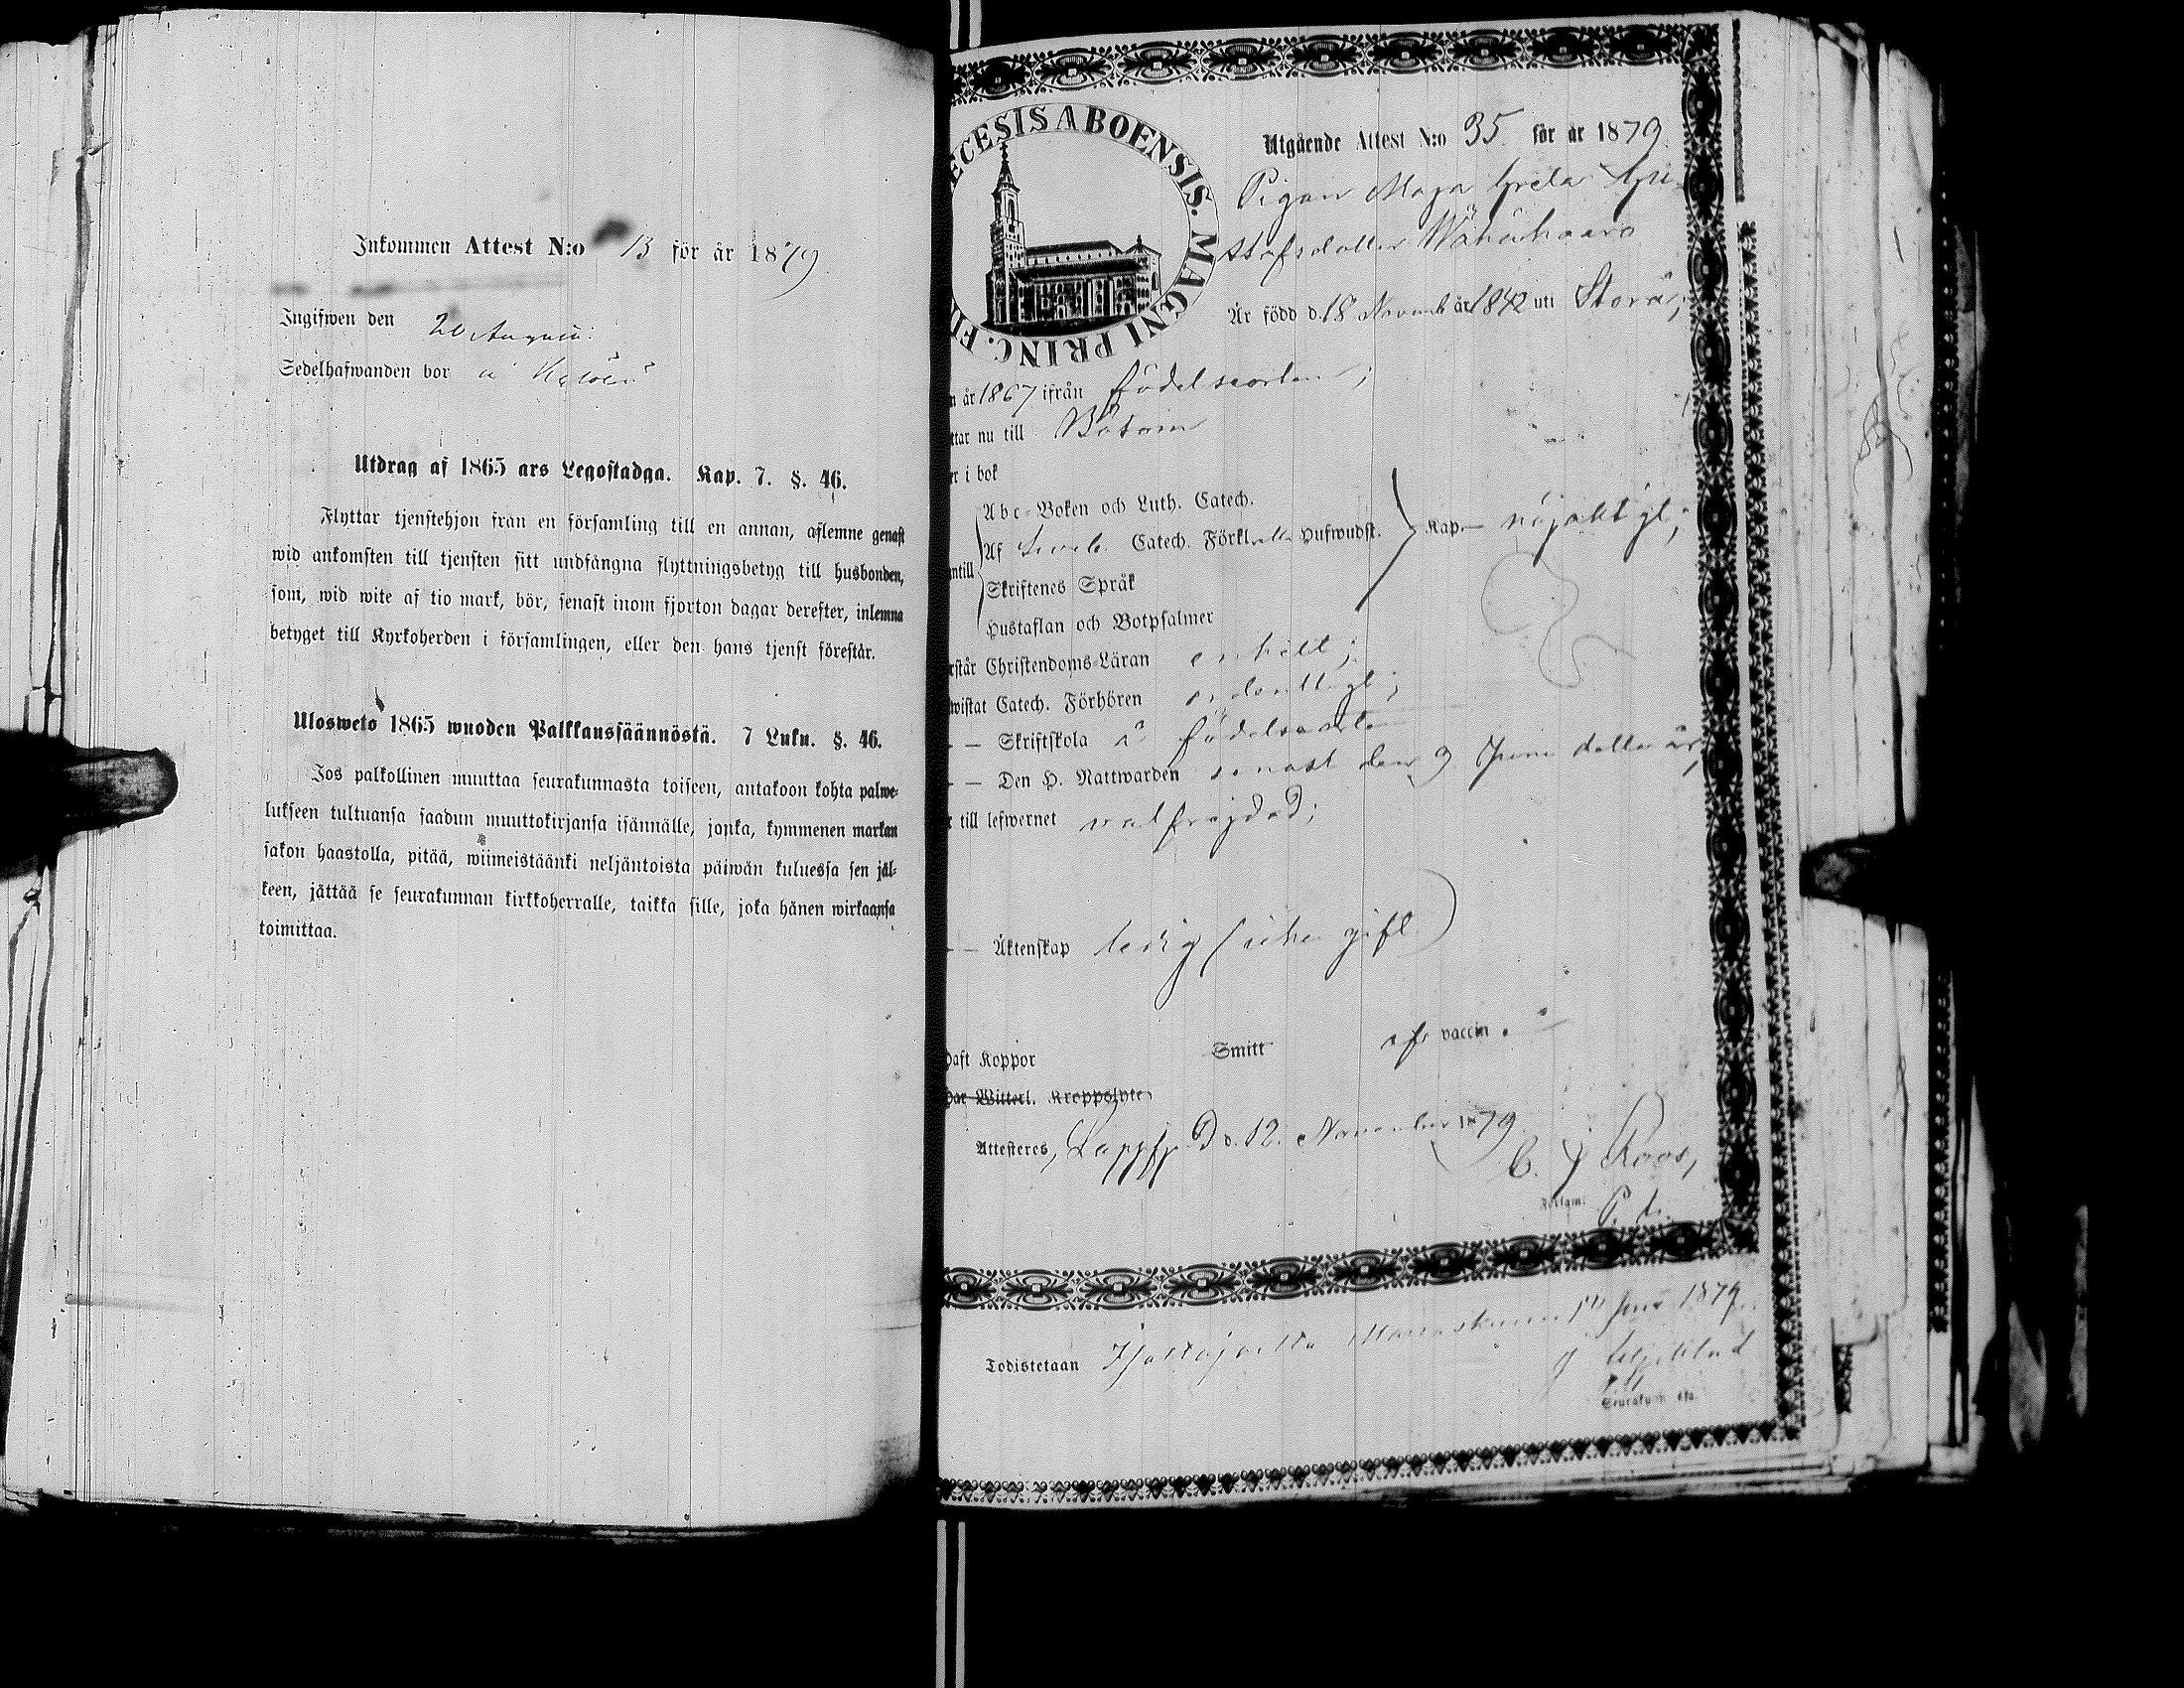 Inkommen Attest N:o 13 för år 1879
Ingifwen den 20 Augusti
Sedelhafwanden bor å
Utdrag af 1865 ars Legostadga. Kap. 7. §. 46.
Flyttar tjenstehjon från en församling till en annan, aflemne genast
wid ankomsten till tjensten sitt undfångna flyttningsbetyg till husbonden,
som, wid wite af tio mark, bör, senast inom fjorton dagar derefter, inlemna
betyget till Kyrkoherden i församlingen, eller den hans tjenst förestår.
Ulosweto 1865 wuoden Palkkaussäännöstä. 7 Luku. §. 46.
Jos palkollinen muuttaa seurakunnasta toiseen, antakoon kohta palwe-
lukseen tultuansa saadun muuttokirjansa isännälle, jonka, kymmenen markan
sakon haastolla, pitää, wiimeistäänki neljäntoista päiwän kuluessa sen jäl-
keen, jättää se seurakunnan kirkkoherralle, taikka sille, joka hänen wirkaansa
toimittaa.
ECESIS ABOENSIS. MAGNI PRINC. FI
Utgående Attest N:o 35 för år 1879.
Pigan Maja Greta Gu-
stafsdotter Wähähaara
Är född d. 18 Novemb år 1842 uti Storå;
n år 1867 ifrån födelseorten;
ttar nu till Bötom
er i bok
Abc-Boken och Luth. Catech.
Af Sveb. Catech. Förkl. Hufwudst. Kap. — nöjaktigt;
ntill
Skriftenes Språk
Hustaflan och Botpsalmer
rstår Christendoms-Läran enkelt;
wistat Catech. Förhören ordentligt;
— Skriftskola å födelseorten
— Den H. Nattwarden senast den 9 Juni detta år;
r till lefwernet välfrejdad;
— Äktenskap ledig (icke gift)
Haft Koppor Smitt vaccin.
Har Witterl. Kroppslyte
Attesteres, Lappfj. D. 12. November 1879
C. J Roos,
Förlam:
Todistetaan 1879
Seurakunn.